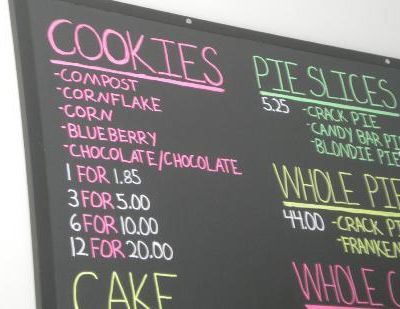 COOKIES
-COMPOST
-CORNFLAKE
-CORN
-BLUEBERRY
-CHOCOLATE/CHOCOLATE
1 FOR 1.85
3 FOR 5.00
6 FOR 10.00
12 FOR 20.00
CAKE
PIE SLICES
5.25 -CRACK PIE
-CANDY BAR PI
-BLONDIE PIE
WHOLE PIE
44.00 -CRACK P
-FRANKEN
WHOLE C